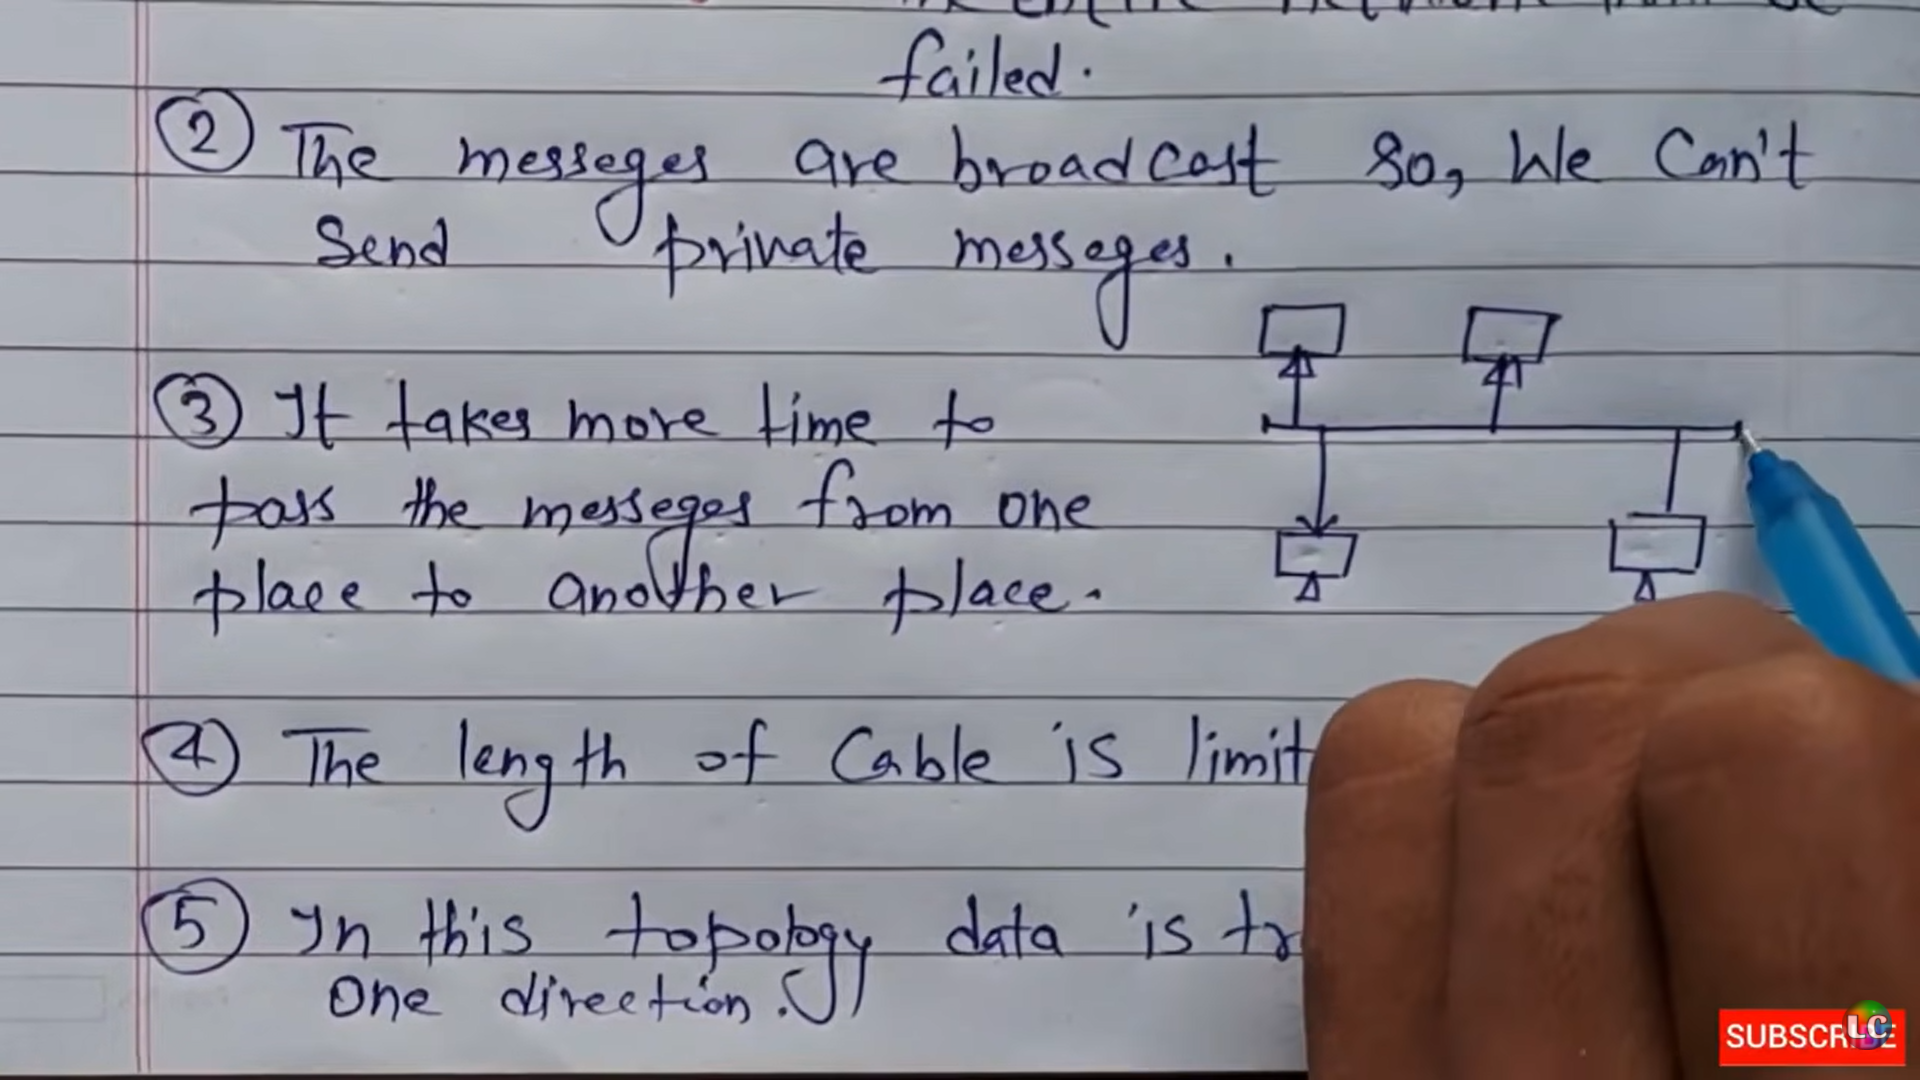 failed.
2 The messeges are broadcast so, We Can't
Send private messeges.
3 It takes more time to
pass the messeges from one
place to another place.
4 The length of Cable is limit
5 In this topology data is tr
One direction.
SUBSCRIBE
LC